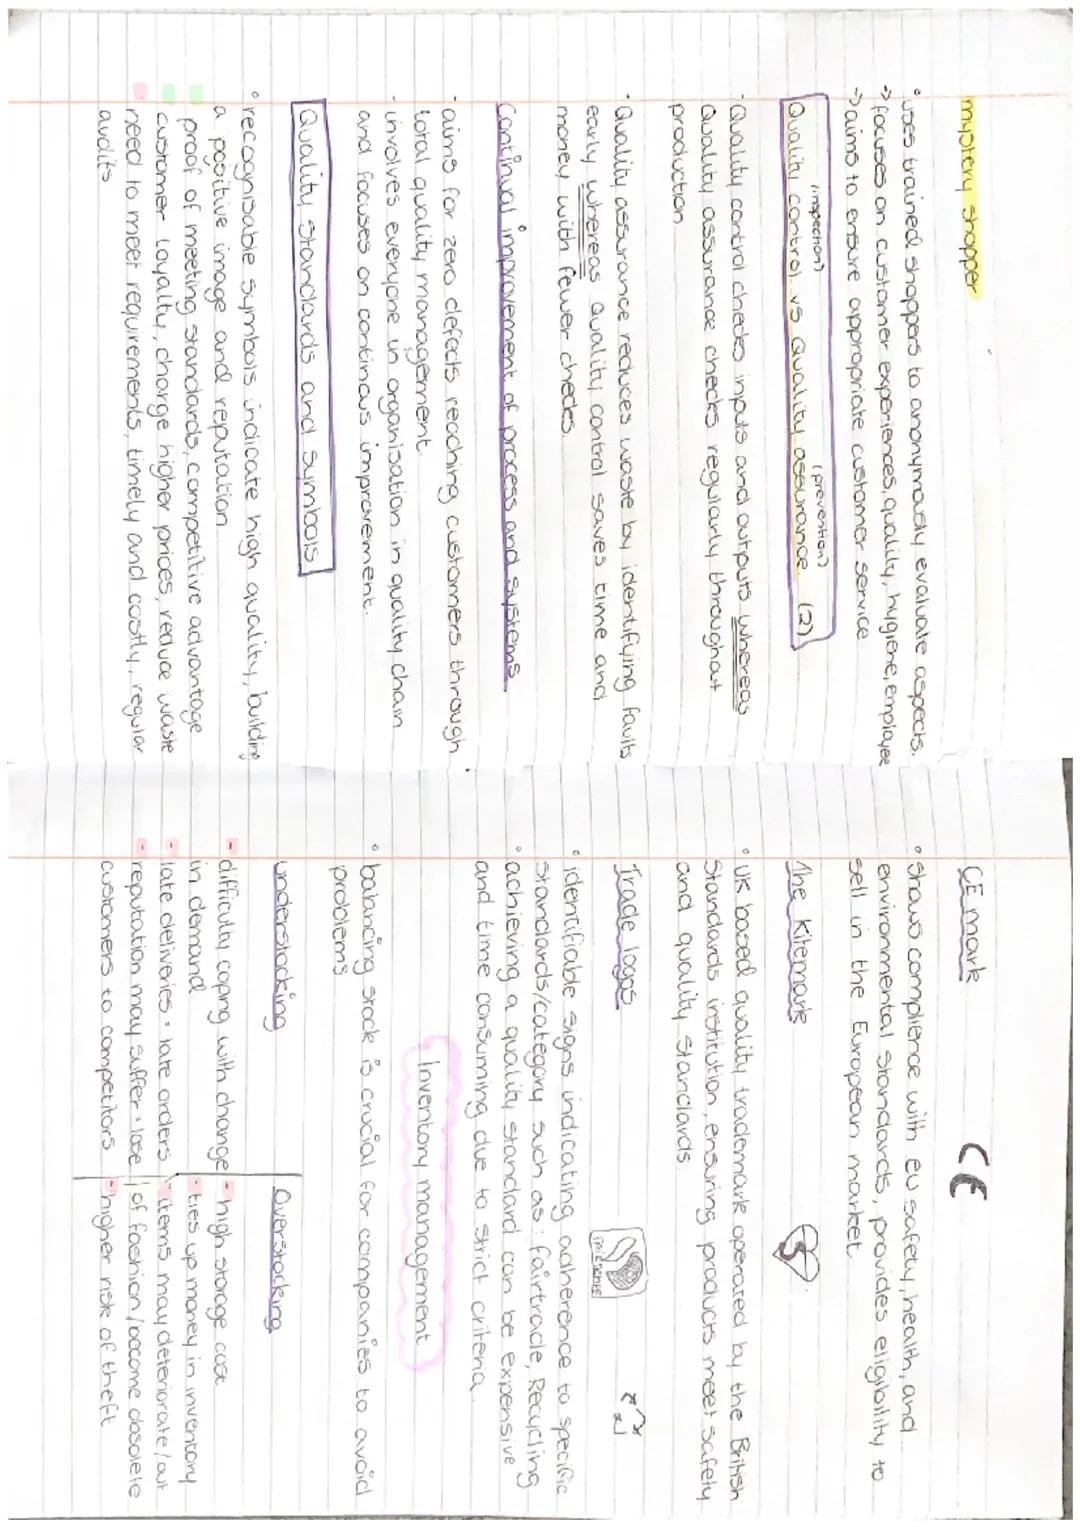 mystery shopper
° uses trained shoppers to anonymously evaluate aspects.
-> focuses on customer experiences, quality, hygiene, employee
-> aims to ensure appropriate customer service
(inspection) (prevention)
Quality control vs Quality assurance (2)
· Quality control checks inputs and outputs whereas
Quality assurance checks regularly throughout
production
· Quality assurance reduces waste by identifying faults
early whereas Quality control saves time and
money with fewer checks.
Continual improvement of process and systems
· aims for zero defects reaching customers through
total quality management
· involves everyone in organisation in quality chain
and focuses on continous improvement.
Quality standards and symbols
° recognisable symbols indicate high quality, building
a positive image and reputation
proof of meeting standards, competitive advantage
customer loyalty, charge higher prices, reduce waste
need to meet requirements, timely and costly, regular
audits
CE mark CE
° shows complience with eu safety, health, and
environmental standards, provides eligibility to
sell in the European market.
The Kitemark
° UK based quality trademark operated by the British
Standards institution, ensuring products meet safety
and quality standards
Trade logos
° identifiable signs indicating adherence to specific
standards/category such as: fairtrade, Recycling
° achieving a quality standard can be expensive
and time consuming due to strict criteria.
Inventory management
° balancing stock is crucial for companies to avoid
problems
understocking
- difficulty coping with change
in demand
- late deliveries = late orders
- reputation may suffer = lose
customers to competitors
Overstocking
- high storage cost
- ties up money in inventory
- items may deteriorate/out
of fashion/become obsolete
- higher risk of theft